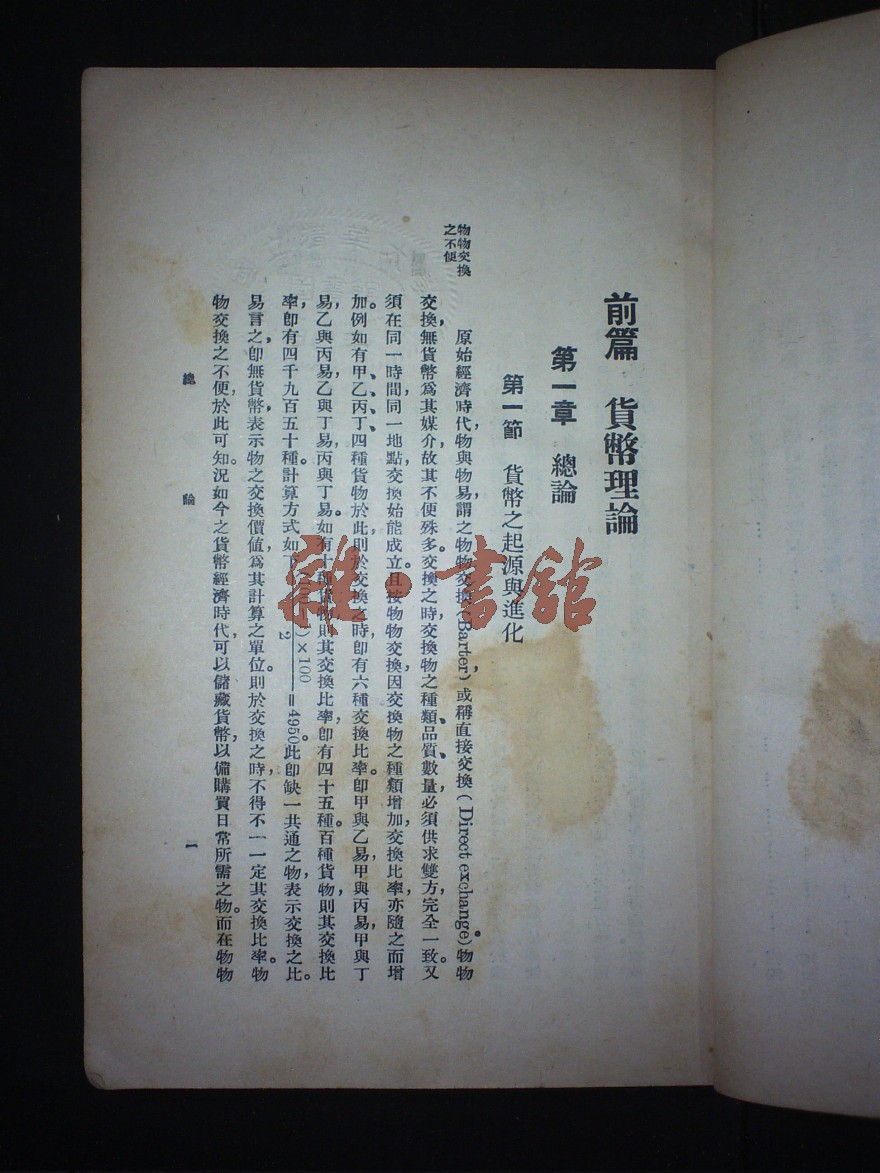 前篇　貨幣理論
第一章　總論
第一節　貨幣之起源與進化
物物交換
之不便
原始經濟時代，物與物易，謂之物物交換(Barter)，或稱直接交換(Direct exchange)。物物
交換，無貨幣爲其媒介，故其不便殊多。交換之時，交換物之種類、品質、數量，必須供求雙方完全一致。又
須在同一時間，同一地點，交換始能成立。且按物物交換，因交換物之種類增加，交換比率，亦隨之而增
加。例如有甲、乙、丙、丁、四種貨物於此，則於交換之時，卽有六種交換比率。卽甲與乙易，甲與丙易，甲與丁
易，乙與丙易，乙與丁易，丙與丁易。如有十種貨物，則其交換比率，卽有四十五種。百種貨物，則其交換比
率，卽有四千九百五十種。計算方式如下 )×100/2=4950。此卽缺一共通之物，表示交換之比。
易言之，卽無貨幣，表示物之交換價值，爲其計算之單位。則於交換之時，不得不一一定其交換比率。物
物交換之不便，於此可知。況如今之貨幣經濟時代，可以儲藏貨幣，以備購買日常所需之物。而在物物
總　論
一
雜·書館